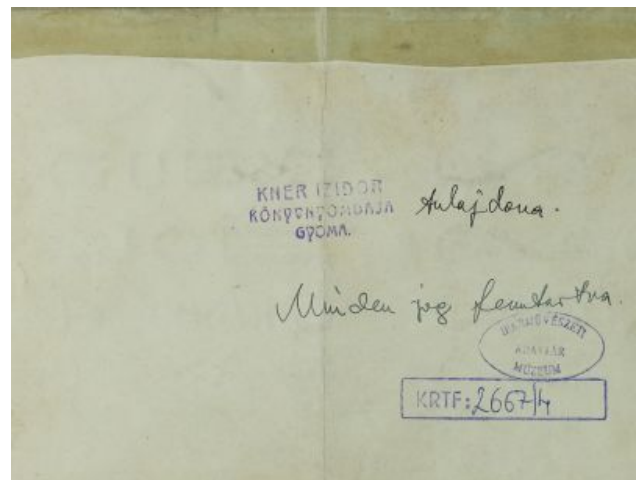 KNER IZIDOR
KÖNYVNYOMDÁJA
GYOMA.
tulajdona.
Minden jog fenntartva.
IPARMŰVÉSZETI
ADATTÁR
MÚZEUM
KRTF: 2667/4